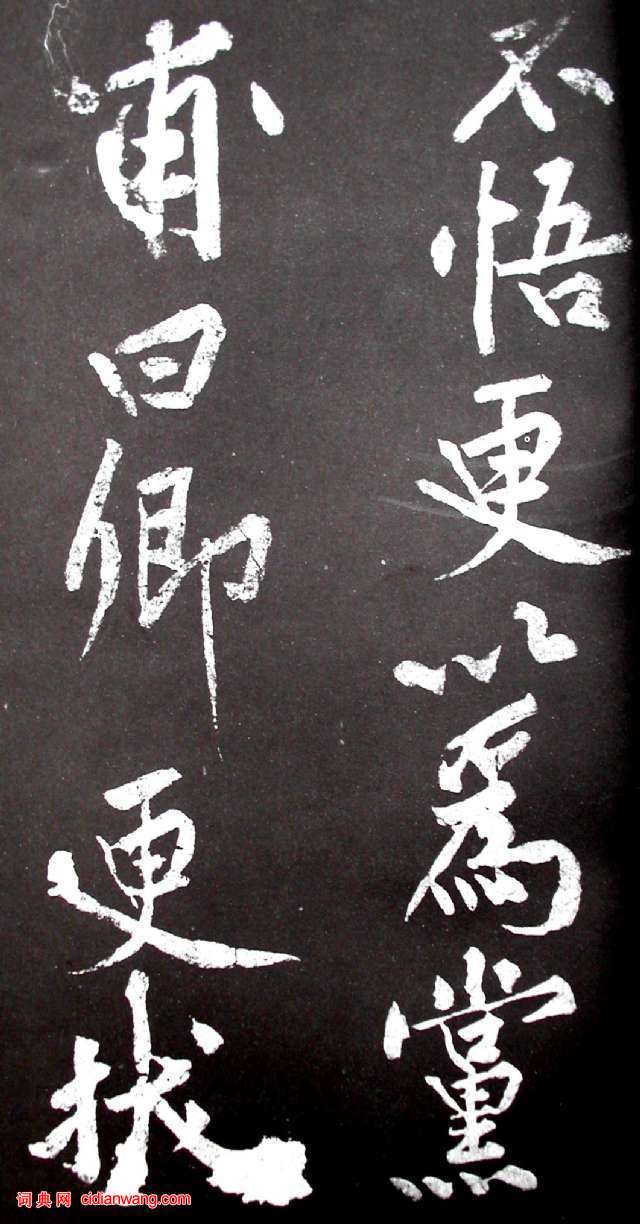 不悟更以為黨
甫曰卿更拔
词典网 cidianwang.com